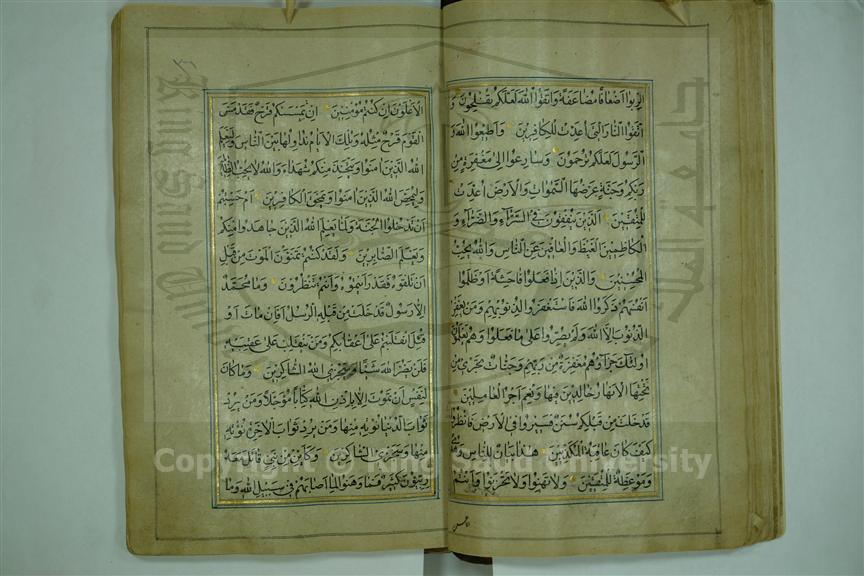 الربوا اضعافا مضاعفة واتقوا الله لعلكم تفلحون و
اتقوا النار التى اعدت للكافرين واطيعوا الله و
الرسول لعلكم ترحمون وسارعوا الى مغفرة من
ربكم وجنة عرضها السموات والارض اعدت
للمتقين الذين ينفقون فى السرآء والضرآء و
الكاظمين الغيظ والعافين عن الناس والله يحب
المحسنين والذين اذا فعلوا فاحشة او ظلموا
انفسهم ذكروا الله فاستغفروا لذنوبهم ومن يغفر
الذنوب الا الله ولم يصروا على ما فعلوا وهم يعلمون
اولئك جزآؤهم مغفرة من ربهم وجنات تجرى من
تحتها الانهار خالدين فيها ونعم اجر العاملين
قد خلت من قبلكم سنن فسيروا فى الارض فانظروا
كيف كان عاقبة المكذبين هذا بيان للناس وهدى
وموعظة للمتقين ولا تهنوا ولا تحزنوا وانتم
الاعلون ان كنتم مؤمنين ان يمسسكم قرح فقد مس
القوم قرح مثله وتلك الايام نداولها بين الناس وليعلم
الله الذين امنوا ويتخذ منكم شهدآء والله لا يحب الظالمين
وليمحص الله الذين امنوا ويمحق الكافرين ام حسبتم
ان تدخلوا الجنة ولما يعلم الله الذين جاهدوا منكم
ويعلم الصابرين ولقد كنتم تمنون الموت من قبل
ان تلقوه فقد رايتموه وانتم تنظرون وما محمد
الا رسول قد خلت من قبله الرسل افان مات او
قتل انقلبتم على اعقابكم ومن ينقلب على عقبيه
فلن يضر الله شيئا وسيجزى الله الشاكرين وما كان
لنفس ان تموت الا باذن الله كتابا مؤجلا ومن يرد
ثواب الدنيا نؤته منها ومن يرد ثواب الاخرة نؤته
منها وسنجزى الشاكرين وكاين من نبى قاتل معه
ربيون كثير فما وهنوا لما اصابهم فى سبيل الله وما
King Saud University
جامعة الملك
Copyright © King Saud University